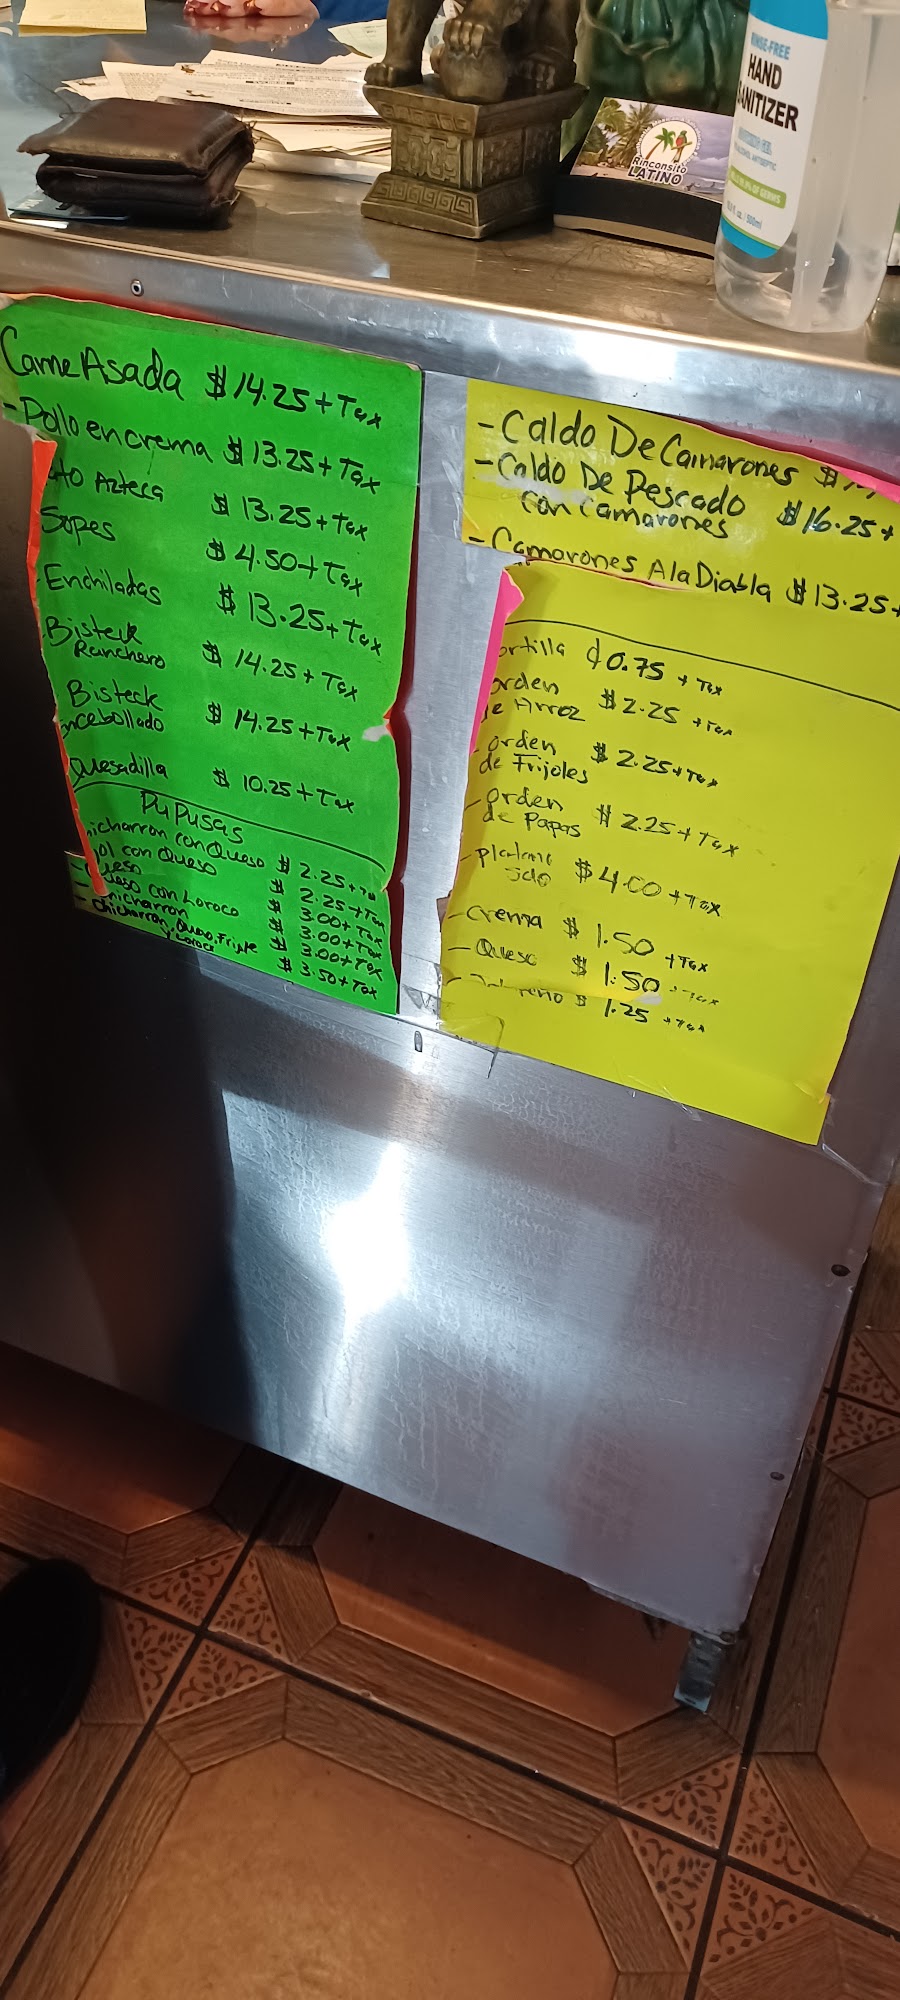 RINSE-FREE
HAND
SANITIZER
Rinconsito
LATINO
Carne Asada $14.25 + Tax
- Pollo en crema $13.25 + Tax
Azteca $13.25 + Tax
Sopes $4.50 + Tax
Enchiladas $13.25 + Tax
Bisteck
Ranchero $14.25 + Tax
Bisteck
encebollado $14.25 + Tax
Quesadilla $10.25 + Tax
PuPusas
chicharron con Queso $2.25 + Tax
con Queso $2.25 + Tax
Queso $3.00 + Tax
Queso con Loroco $3.00 + Tax
chicharron $3.00 + Tax
- chicharron, Queso, Frijole
y Loroco $3.50 + Tax
- Caldo De Camarones $
- Caldo De Pescado
con Camarones $16.25 +
- Camarones A la Diabla $13.25 +
ortilla ¢0.75 + Tax
orden
de Arroz $2.25 + Tax
- orden
de Frijoles $2.25 + Tax
- orden
de Papas $2.25 + Tax
- platano $4.00 + Tax
- Crema $1.50 + Tax
- Queso $1.50 + Tax
$1.25 + Tax